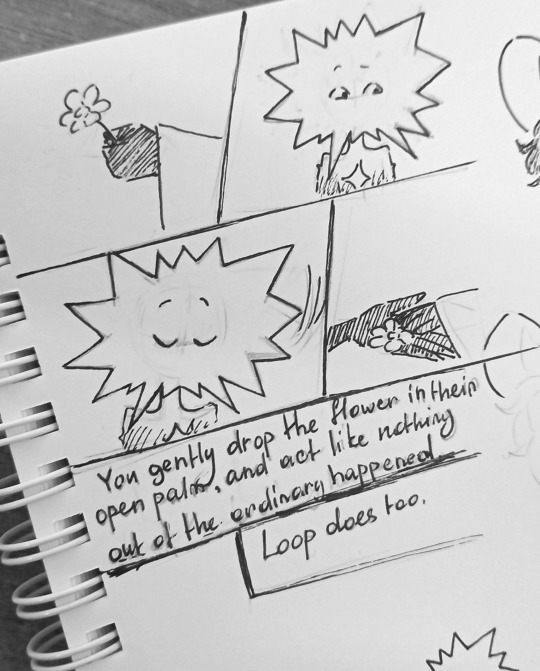 You gently drop the flower in their
open palm, and act like nothing
out of the ordinary happened.
Loop does too.